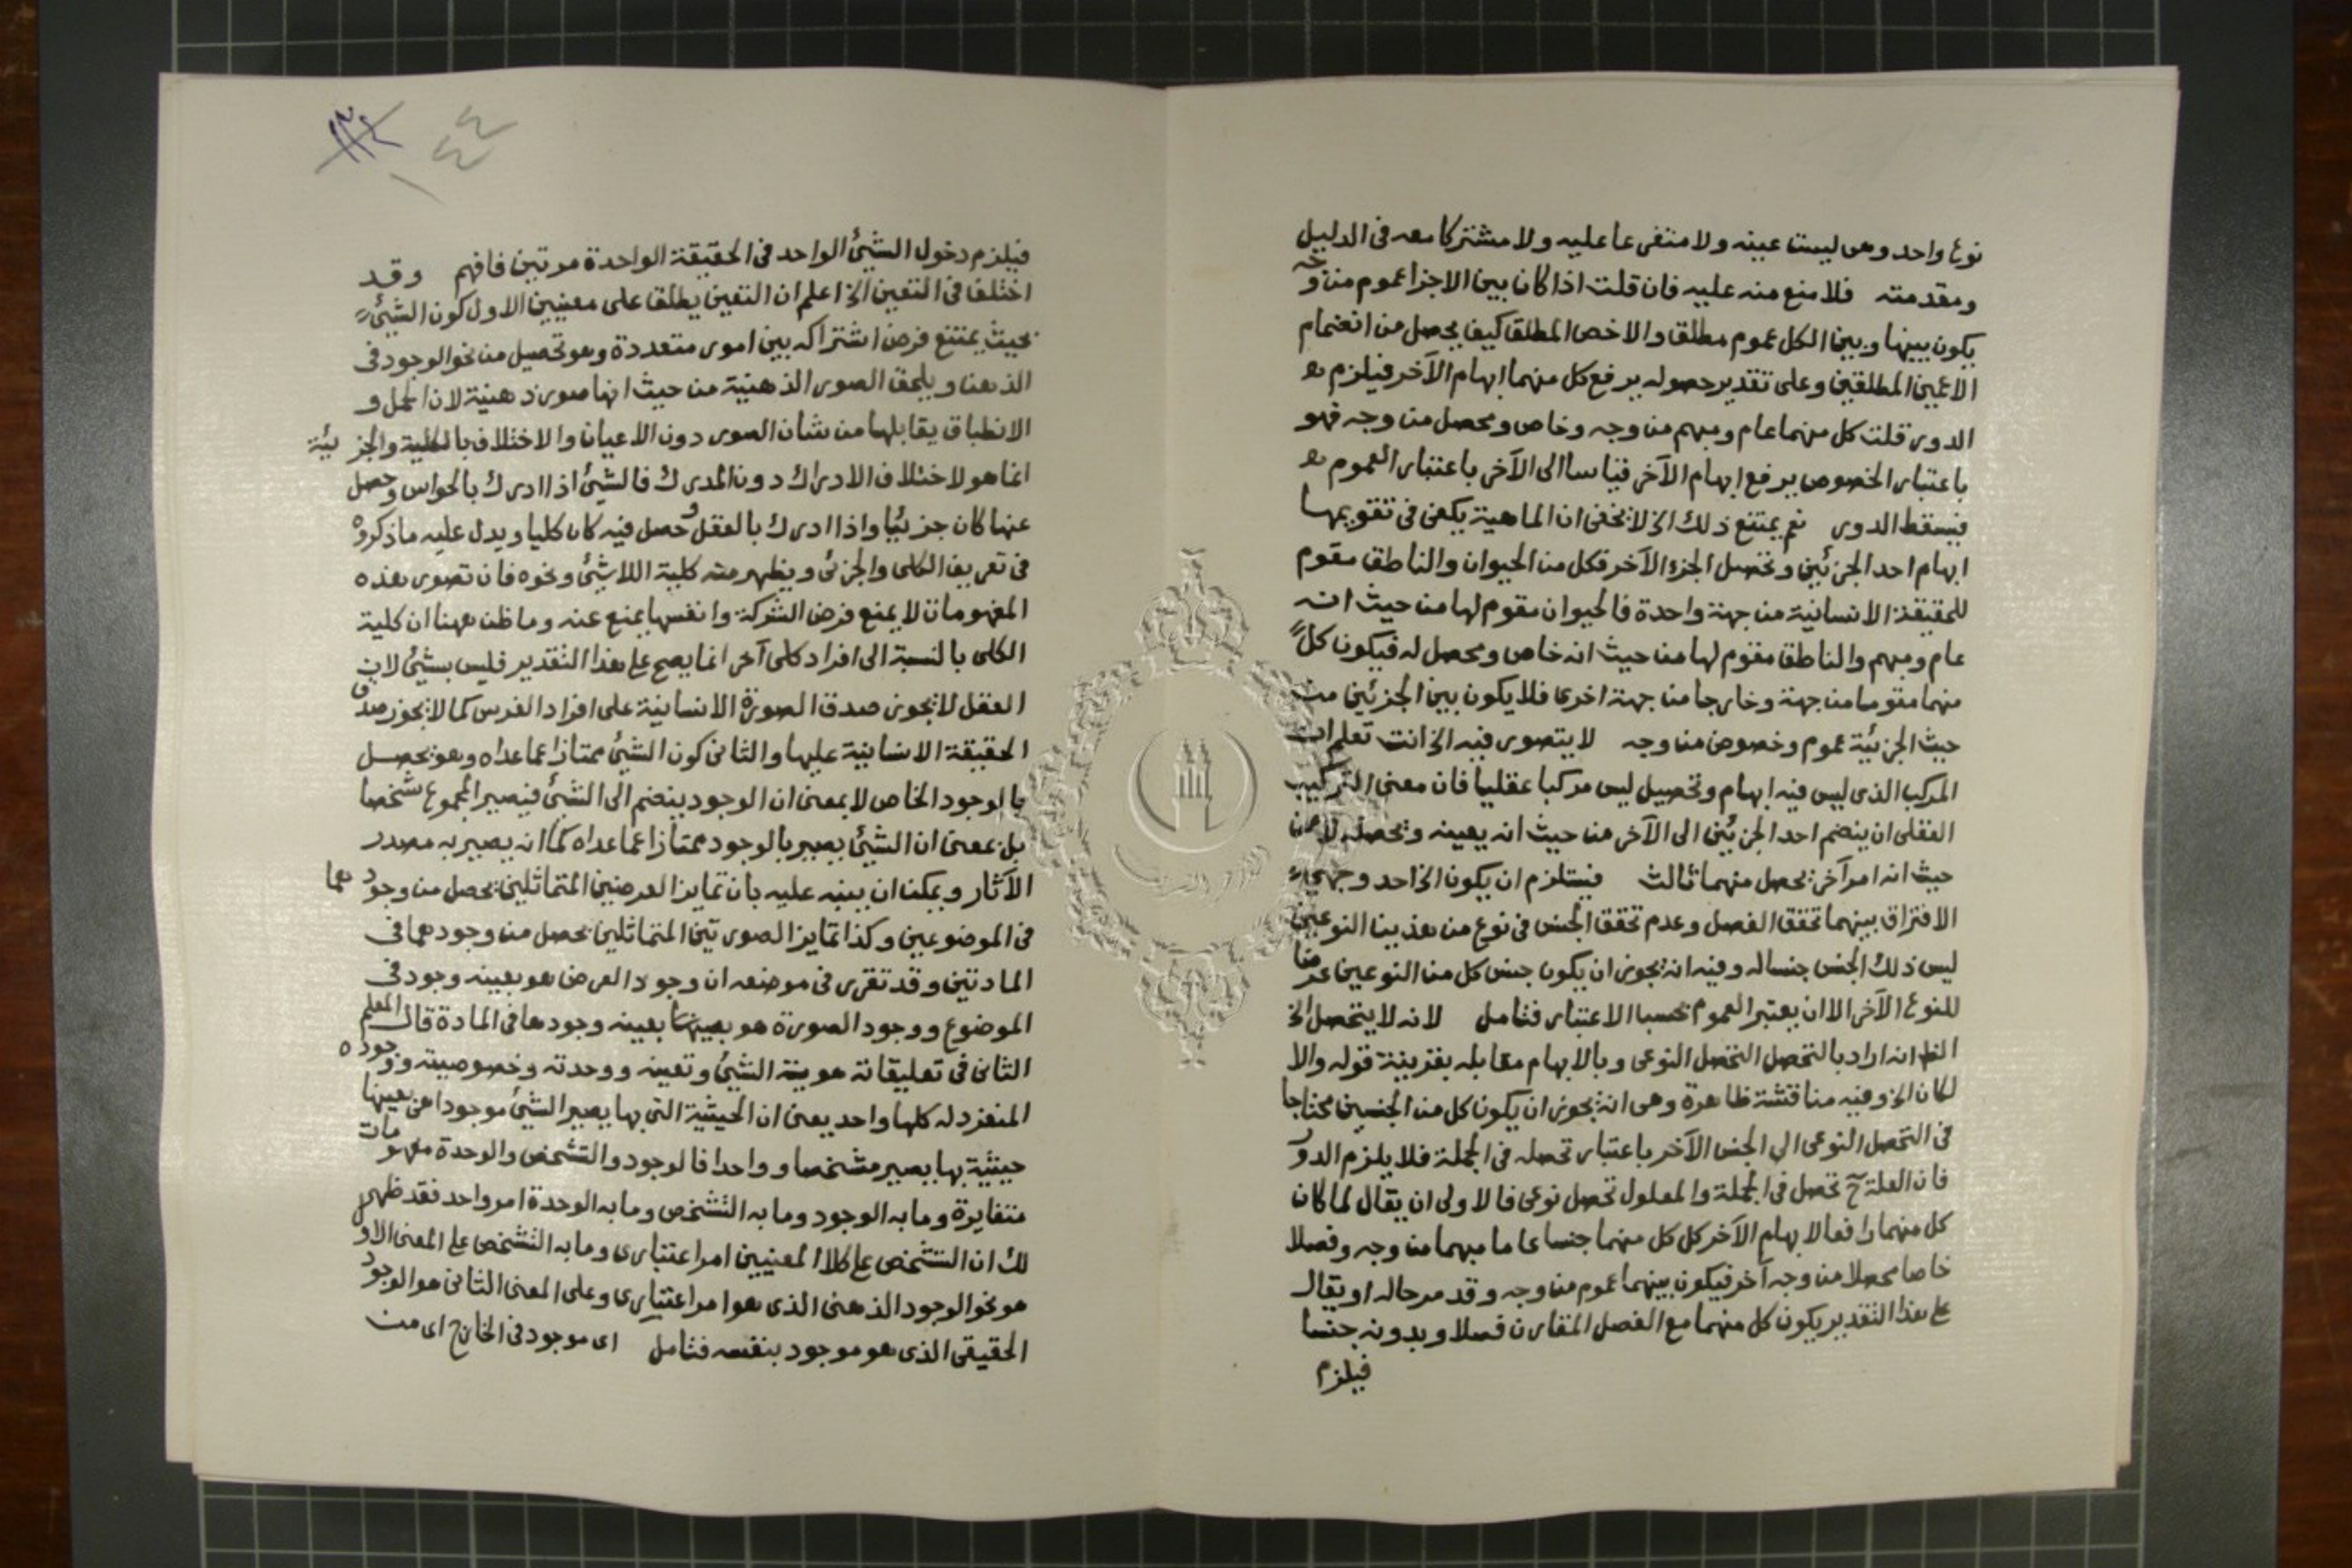 نوعا واحد وهى ليست عينه ولا متفرعا عليه ولا مشتركا معه فى الدليل
ومقدمته فلا منع منه عليه فان قلت اذا كان بين الاجزا عموم من وجه
يكون بينها وبين الكل عموم مطلقا والاخص المطلق كيف يحصل من انضمام
الاعمين المطلقين وعلى تقدير حصوله يرفع كل منهما ابهام الآخر فيلزم
الدور قلت كل منهما عام ومبهم من وجه وخاص ومحصل من وجه فهو
باعتبار الخصوص يرفع ابهام الآخر قياسا الى الآخر باعتبار العموم
فيسقط الدور نعم يمتنع ذلك الخ لا يخفى ان الماهية يكفى فى تقويمها
ابهام احد الجزئين وتحصل الجزء الآخر فكل من الحيوان والناطق مقوم
للحقيقة الانسانية من جهة واحدة فالحيوان مقوم لها من حيث انه
عام ومبهم والناطق مقوم لها من حيث انه خاص ومحصل له فيكون كل
منهما مقوما من جهة وخارجا من جهة اخرى فلا يكون بين الجزئين من
حيث الجزئية عموم وخصوص من وجه لا يتصور فيه الخ انت تعلم ان
المركب الذى ليس فيه ابهام وتحصيل ليس مركبا عقليا فان معنى التركيب
العقلى ان ينضم احد الجزئين الى الآخر من حيث انه يعينه ويحصله لا من
حيث انه امر آخر يحصل منهما ثالث فيستلزم ان يكون الخ احد وجهى
الافتراق بينهما تحقق الفصل وعدم تحقق الجنس فى نوع من هذين النوعين
ليس ذلك الجنس جنسا له وفيه انه يجوز ان يكون جنس كل من النوعين عرضا
للنوع الآخر الا ان يعتبر العموم بحسب الاعتبار فتامل لانه لا يتحصل الخ
الظ انه اراد بالتحصل التحصل النوعى وبالابهام مقابله بقرينة قوله والا
لكان الخ وفيه مناقشة ظاهرة وهى انه يجوز ان يكون كل من الجنسين محتاجا
فى التحصل النوعى الى الجنس الآخر باعتبار تحصله فى الجملة فلا يلزم الدور
فان العلة ح تحصل فى الجملة والمعلول تحصل نوعى فالاولى ان يقال لما كان
كل منهما رافعا لابهام الآخر كل كل منهما جنسا عاما مبهما من وجه وفصلا
خاصا محصلا من وجه آخر فيكون بينهما عموم من وجه وقد مر حاله او يقال
على هذا التقدير يكون كل منهما مع الفصل المقارن فصلا وبدونه جنسا
فيلزم
١٤٤
فيلزم دخول الشيئ الواحد فى الحقيقة الواحدة مرتين فافهم وقد
اختلف فى التعين الخ اعلم ان التعين يطلق على معنيين الاول كون الشيئ
بحيث يمتنع فرض اشتراكه بين امور متعددة وهو تحصيل من نحو الوجود فى
الذهن ويلحق الصور الذهنية من حيث انها صور ذهنية لان الحمل و
الانطباق يقابلها من شان الصور دون الاعيان والاختلاف بالكلية والجزئية
انما هو لاختلاف الادراك دون المدرك فالشيئ اذا ادرك بالحواس وحصل
عنها كان جزئيا واذا ادرك بالعقل وحصل فيه كان كليا ويدل عليه ما ذكروه
فى تعريف الكلى والجزئى ويظهر منه كلية اللاشئ ونحوه فان تصور هذه
المفهومات لا يمنع فرض الشركة وانفسها يمنع عنه وما ظن ههنا ان كلية
الكلى بالنسبة الى افراد كلى آخر انما يصح على هذا التقدير فليس بشيئ لان
العقل لا يجوز صدق الصورة الانسانية على افراد الفرس كما لا يجوز صدق
الحقيقة الانسانية عليها والثانى كون الشيئ ممتازا عما عداه وهو يحصل
بالوجود الخاص لا بمعنى ان الوجود ينضم الى الشيئ فيصير المجموع شخصا
بل بمعنى ان الشيئ يصير بالوجود ممتازا عما عداه كما انه يصير به مصدر
الآثار ويمكن ان ينبه عليه بان تمايز العرضين المتماثلين يحصل من وجودهما
فى الموضوعين وكذا تمايز الصورتين المتماثلين يحصل من وجودهما فى
المادتين وقد تقرر فى موضعه ان وجود العرض هو بعينه وجود فى
الموضوع ووجود الصورة هو بعينها بعينه وجودها فى المادة قال المعلم
الثانى فى تعليقاته هوية الشيئ وتعينه ووحدته وخصوصيته ووجوده
المنفرد له كلها واحد يعنى ان الحيثية التى بها يصير الشيئ موجودا هى بعينها
حيثية بها يصير مشخصا وواحدا فالوجود والتشخص والوحدة مفهومات
متغايرة وما به الوجود وما به التشخص وما به الوحدة امر واحد فقد ظهر
لك ان التشخص على كلا المعنيين امر اعتبارى وما به التشخص على المعنى الاول
هو نحو الوجود الذهنى الذى هو امر اعتبارى وعلى المعنى الثانى هو الوجود
الحقيقى الذى هو موجود بنفسه فتامل اى موجود فى الخارج اى من